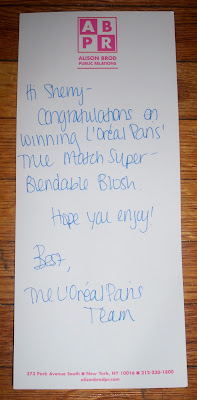 AB
PR
ALISON BROD
PUBLIC RELATIONS
Hi Sherry-
Congratulations on
winning L'Oréal Paris'
True Match Super-
Blendable Blush.
Hope you enjoy!
Best,
The L'Oréal Paris
Team
373 Park Avenue South • New York, NY 10016 • 212-230-1800
alisonbrodpr.com